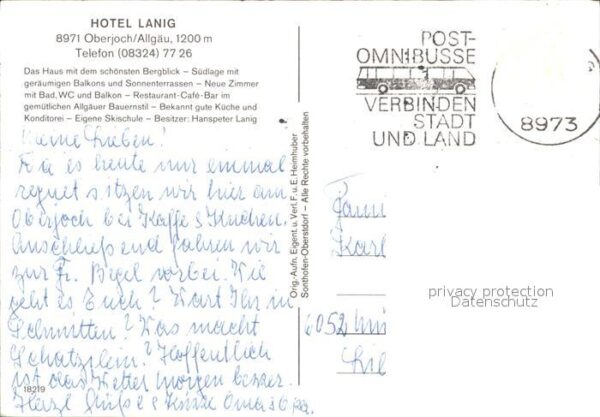 HOTEL LANIG
8971 Oberjoch/Allgäu, 1200 m
Telefon (08324) 77 26
Das Haus mit dem schönsten Bergblick – Südlage mit
geräumigen Balkons und Sonnenterrassen – Neue Zimmer
mit Bad, WC und Balkon – Restaurant-Café-Bar im
gemütlichen Allgäuer Bauernstil – Bekannt gute Küche und
Konditorei – Eigene Skischule – Besitzer: Hanspeter Lanig
Meine Lieben!
Da es heute nur einmal
regnet sitzen wir hier am
Oberjoch bei Kaffe & Kuchen.
Anschließend fahren wir
zur Fr. vorbei. Wie
geht es Euch? Wart Ihr in
Schmitten? Was macht
Schatzilein? Hoffentlich
ist das Wetter morgen besser.
Herzl Grüße & Küsse Oma & Opa.
18219
Orig.-Aufn. Eigent. u. Verl. F. u. E. Heimhuber
Sonthofen-Oberstdorf – Alle Rechte vorbehalten
POST-
OMNIBUSSE
VERBINDEN
STADT
UND LAND
8973
Fami
Karl
privacy protection
Datenschutz
6052